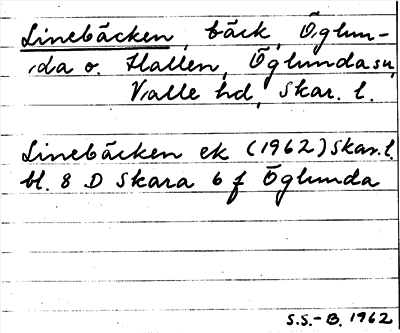 Linebäcken, bäck, Öglun-
da o. Hallen, Öglunda sn,
Valle hd, Skar. l.
Linebäcken ek (1962) Skar. l.
bl. 8 D Skara 6 f Öglunda
S.S.-B. 1962